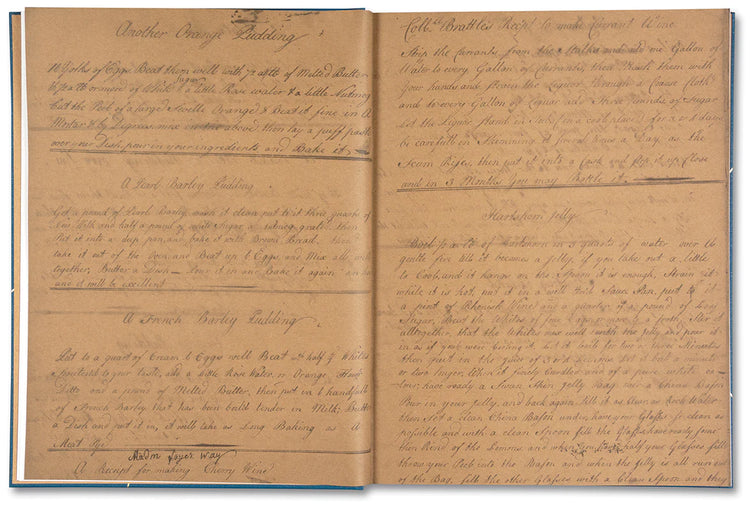 Another Orange Pudding
10 Yolks of Eggs Beat them well with 1/2 a lb of Melted Butter
1/2 a lb or more of White Sugar & a little Rose water & a little Nutmeg
Cut the Peel of a large Sivelle Orange & Beat it fine in a
Mortar & by Degrees mix in the above then lay a puff paste
over your Dish, pour in your ingredients and Bake it,
A Pearl Barley Pudding
Get a pound of Pearl Barley wash it clean put to it three quarts of
New Milk and half a pound of white Sugar a nutmeg grated then
Put it into a deep pan and bake it with Brown Bread, then
take it out of the Oven and Beat up 6 Eggs and Mix all well
together, Butter a Dish Pour it in and Bake it again an hour
and it will be excellent
A French Barley Pudding
Put to a quart of Cream 6 Eggs well Beat half y Whites
Sweeten to your taste, a little Rose Water, or Orange Flower
Ditto and a pound of Melted Butter, then put in 6 handfulls
of French Barley that has been boild tender in Milk, Butter
a Dish and put it in, it will take as Long Baking as A
Meat Pye
Madm Joyes Way
A Receipt for making Cherry Wine
Coll Brattle's Recipt to make Currant Wine
Strip the Currants from the Stalks and one Gallon of
Water to every Gallon of Currants, then Mash them with
your hands and strain the Liquor through a Coarse Cloth
and to every Gallon of Liquor add Three Pounds of Sugar
Let the Liquor stand in Tubs in a cool place for 2 or 3 days
be carefull in Skimming it several times a Day, as the
Scum Rise, then put it into a Cask and stop it up Close
and in 3 Months you may Bottle it
Hartshorn Jelly
Boil 1/2 a lb of Hartshorn in 3 quarts of water over a
gentle fire till it becomes a jelly, if you take out a little
to Cool, and it hangs on the Spoon it is enough, Strain it
while it is hot, put it in a well tin'd Sauce Pan, put to it
a pint of Rhenish Wine and a quarter of a pound of Loaf
Sugar, Beat the Whites of four Eggs or more to a froth, Stir it
alltogether, that the Whites mix well with the Jelly, and pour it
in as if you were Cooling it, let it boil for two or three Minutes
then put in the juice of 3 or 4 Lemons, let it boil a minute
or two longer, When it finely Curdled and of a pure white co-
-lour, have ready a Swan Skin jelly Bag over a China Bason
Pour in your jelly and back again till it is Clear, as Rock Water
then Set a clean China Bason under, have your Glasses as clean as
possible and with a clean Spoon fill the Glasses have ready some
thin Rind of the Lemons and when you have half your Glasses fill'd
throw your Peel into the Bason and when the jelly is all run out
of the Bag, fill the other Glasses with a Clean Spoon and they